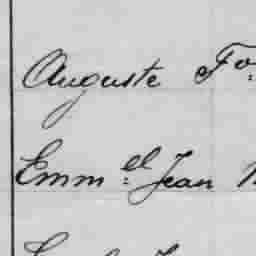 Auguste Fo
Emm.el Jean